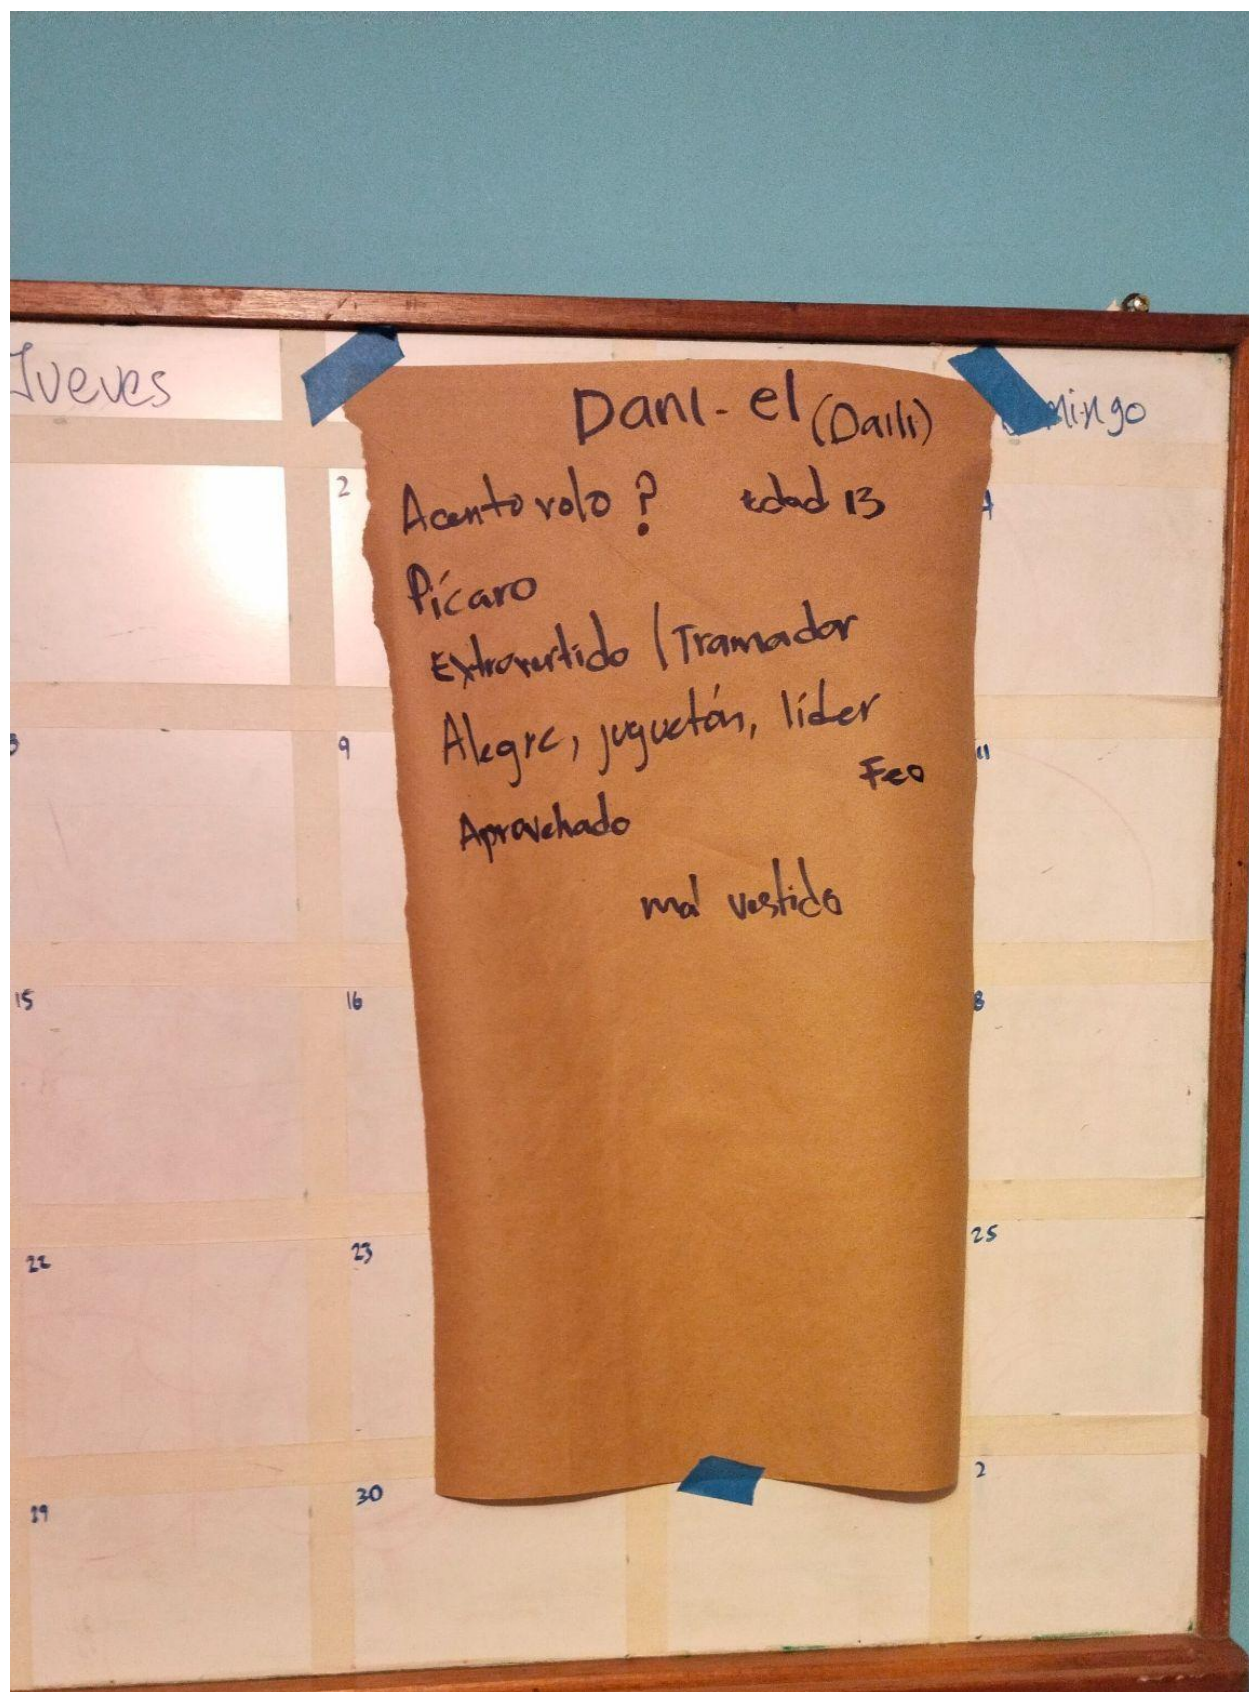 Jueves
Dani-el (Daili)
mingo
2
Acento rolo ? Edad 13
4
Pícaro
Extrovertido / Tramador
Alegre, juguetón, líder
9
11
Feo
Aprovehado
mal vestido
15
16
8
22
23
25
29
30
2